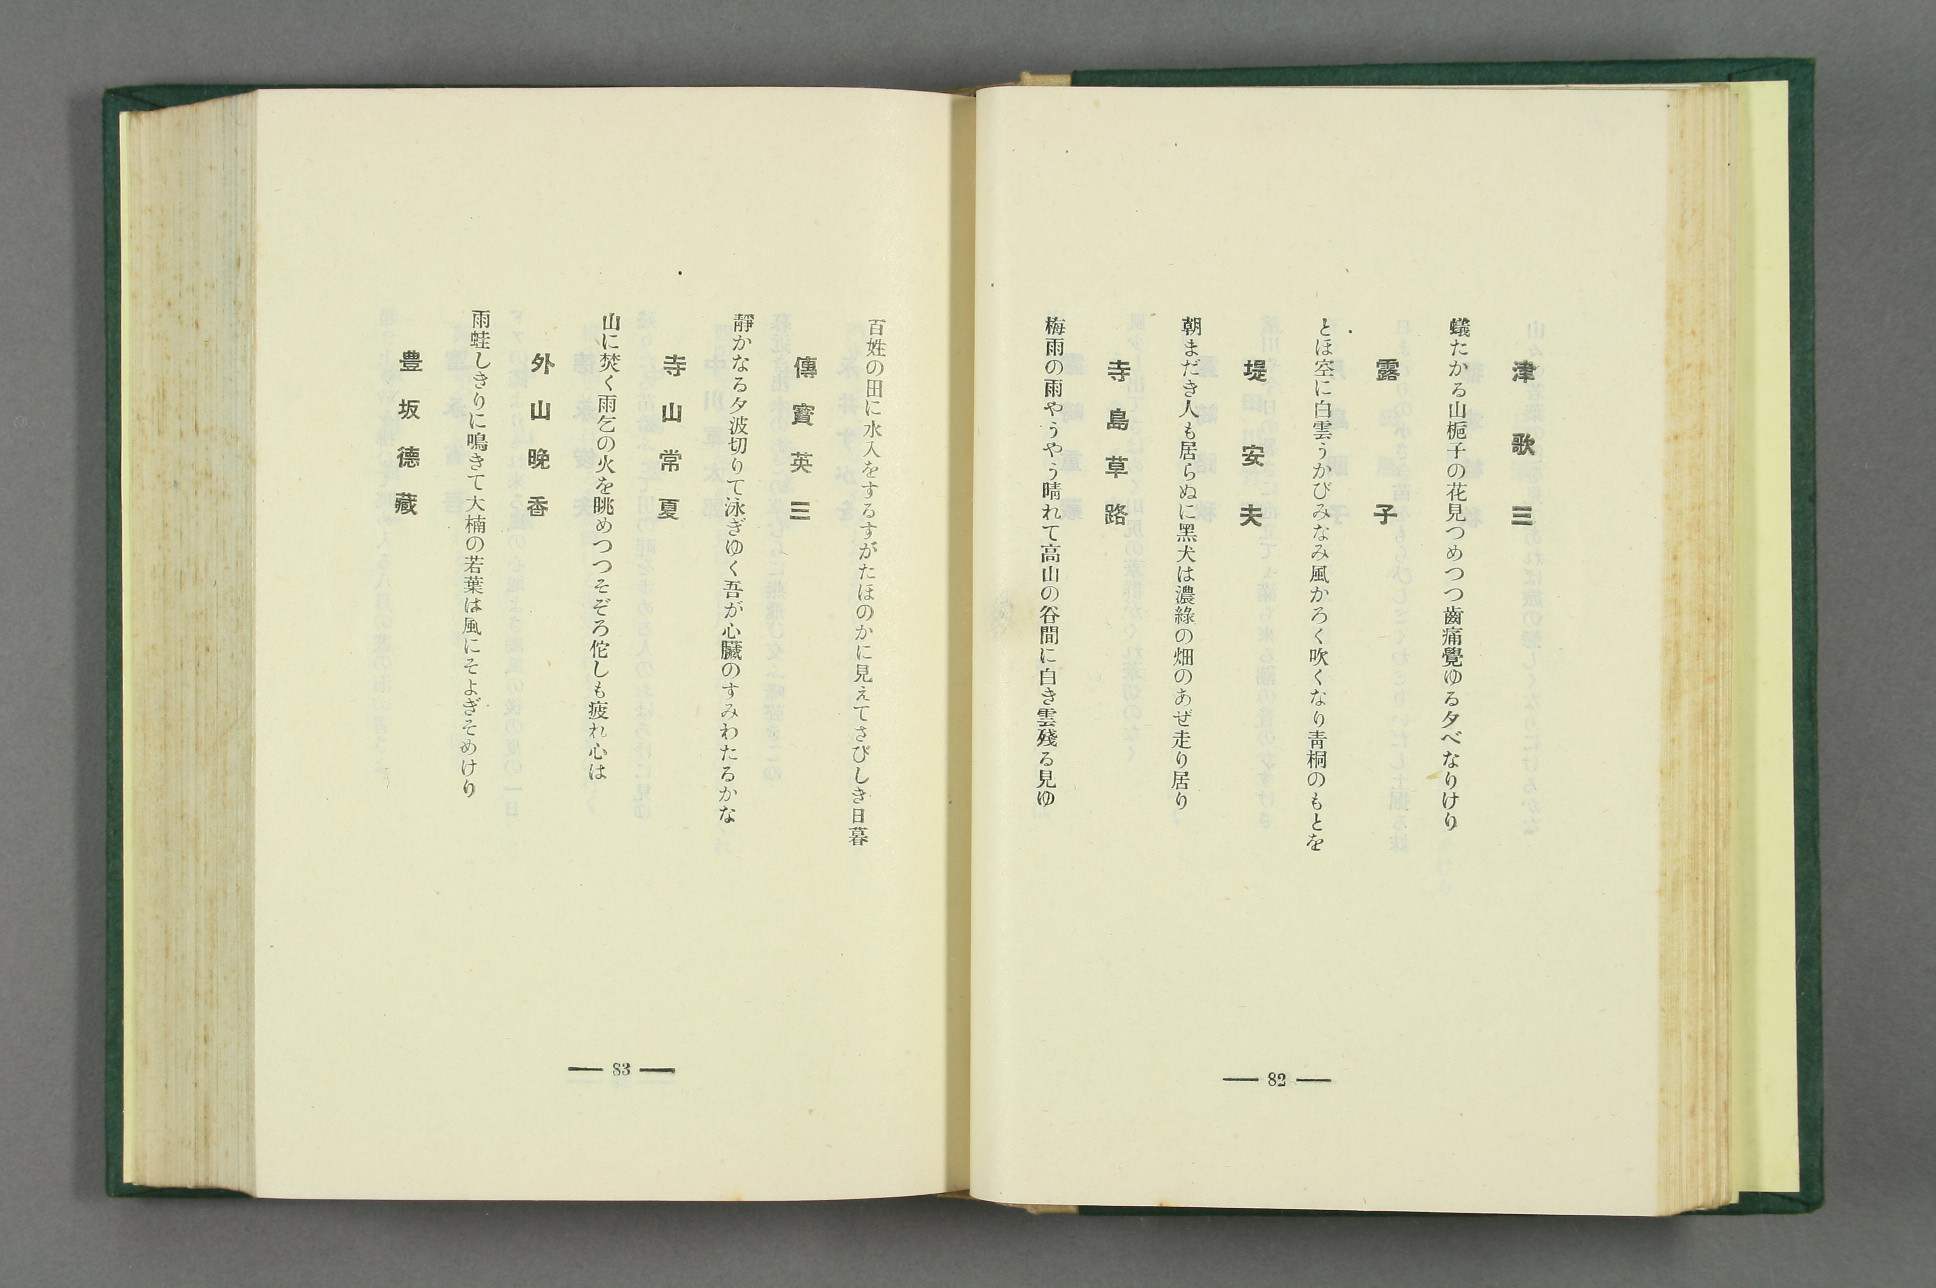 津歌三
蟻たかる山梔子の花見つめつつ齒痛覺ゆる夕べなりけり
露子
とほ空に白雲うかびみなみ風かろく吹くなり青桐のもとを
堤安夫
朝まだき人も居らぬに黑犬は濃綠の畑のあぜ走り居り
寺島草路
梅雨の雨やうやう晴れて高山の谷間に白き雲殘る見ゆ
— 82 —
百姓の田に水入をするすがたほのかに見えてさびしき日暮
傳寳英三
靜かなる夕波切りて泳ぎゆく吾が心臟のすみわたるかな
寺山常夏
山に焚く雨乞の火を眺めつつそぞろ佗しも疲れ心は
外山晩香
雨蛙しきりに鳴きて大楠の若葉は風にそよぎそめけり
豊坂德藏
— 83 —